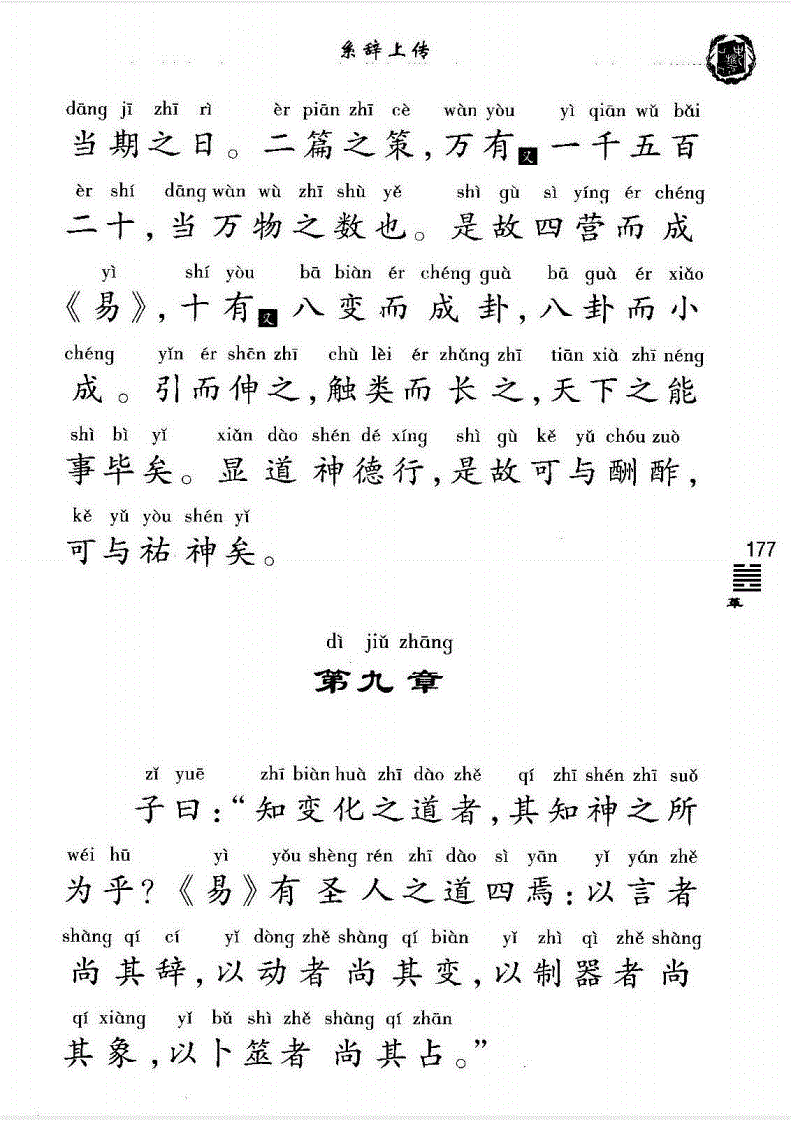 系辞上传
dāng jī zhī rì èr piān zhī cè wàn yòu yì qiān wǔ bǎi
当期之日。二篇之策，万有又一千五百
èr shí dāng wàn wù zhī shù yě shì gù sì yíng ér chéng
二十，当万物之数也。是故四营而成
yì shí yòu bā biàn ér chéng guà bā guà ér xiǎo
《易》，十有又八变而成卦，八卦而小
chéng yǐn ér shēn zhī chù lèi ér zhǎng zhī tiān xià zhī néng
成。引而伸之，触类而长之，天下之能
shì bì yǐ xiǎn dào shén dé xíng shì gù kě yǔ chóu zuò
事毕矣。显道神德行，是故可与酬酢，
kě yǔ yòu shén yǐ
可与祐神矣。
177
革
dì jiǔ zhāng
第九章
zǐ yuē zhī biàn huà zhī dào zhě qí zhī shén zhī suǒ
子曰：“知变化之道者，其知神之所
wéi hū yì yǒu shèng rén zhī dào sì yān yǐ yán zhě
为乎？《易》有圣人之道四焉：以言者
shàng qí cí yǐ dòng zhě shàng qí biàn yǐ zhì qì zhě shàng
尚其辞，以动者尚其变，以制器者尚
qí xiàng yǐ bǔ shì zhě shàng qí zhān
其象，以卜筮者尚其占。”